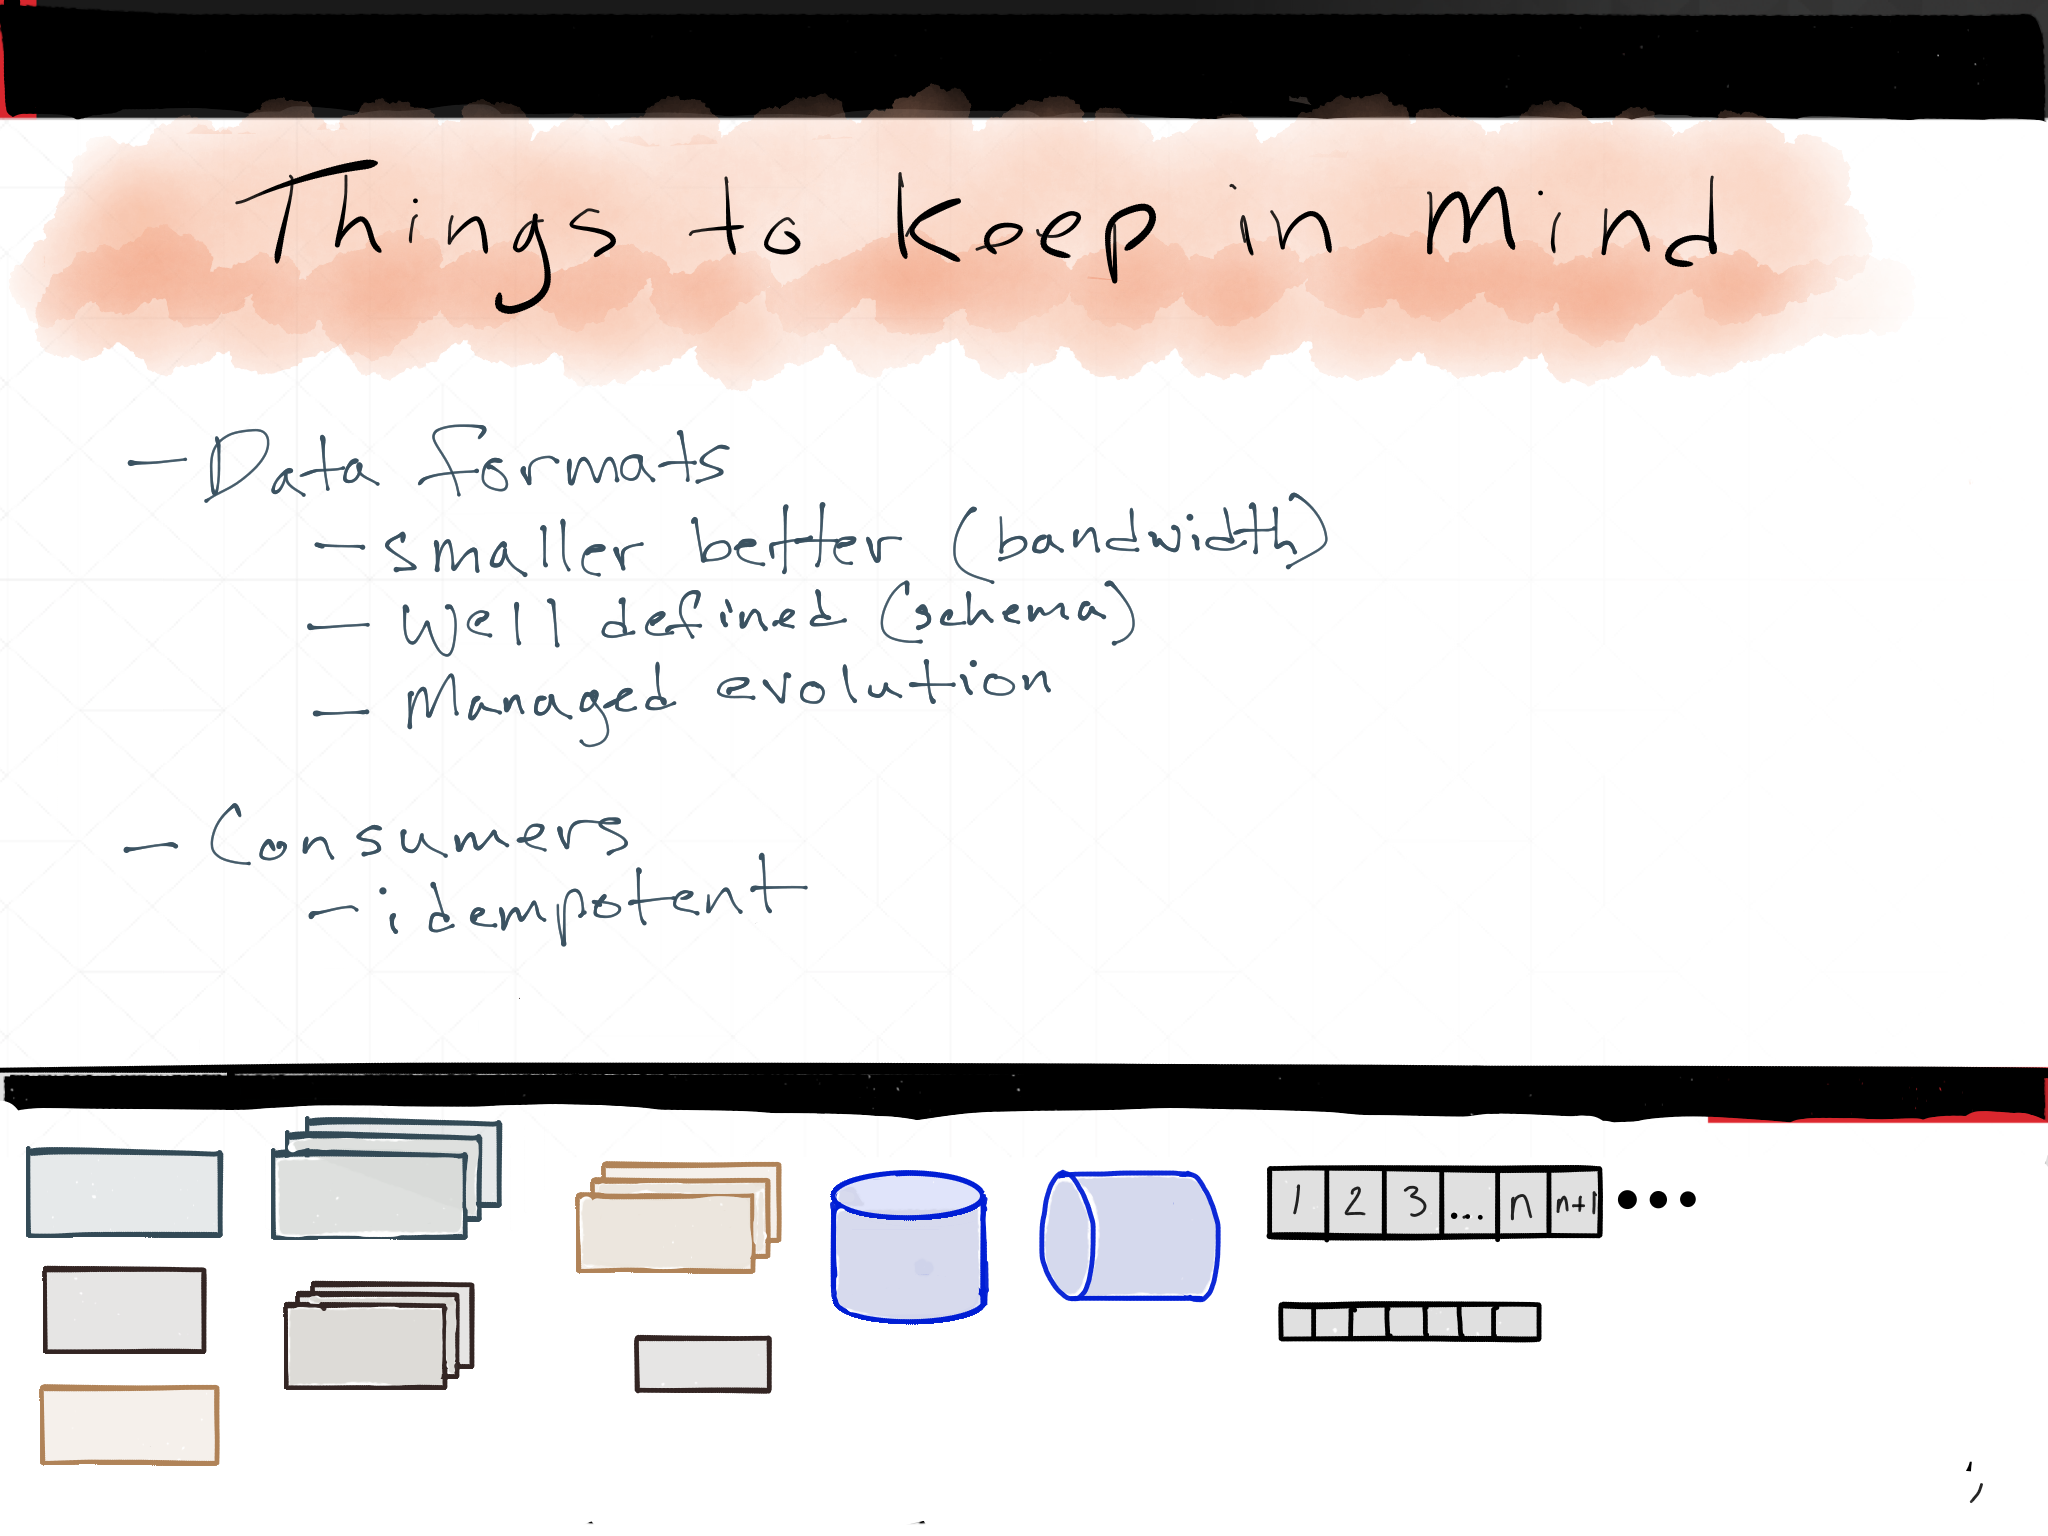 Things to Keep in Mind
- Data formats
- smaller better (bandwidth)
- Well defined (schema)
- Managed evolution
- Consumers
- idempotent
1 2 3 ... n n+1 •••